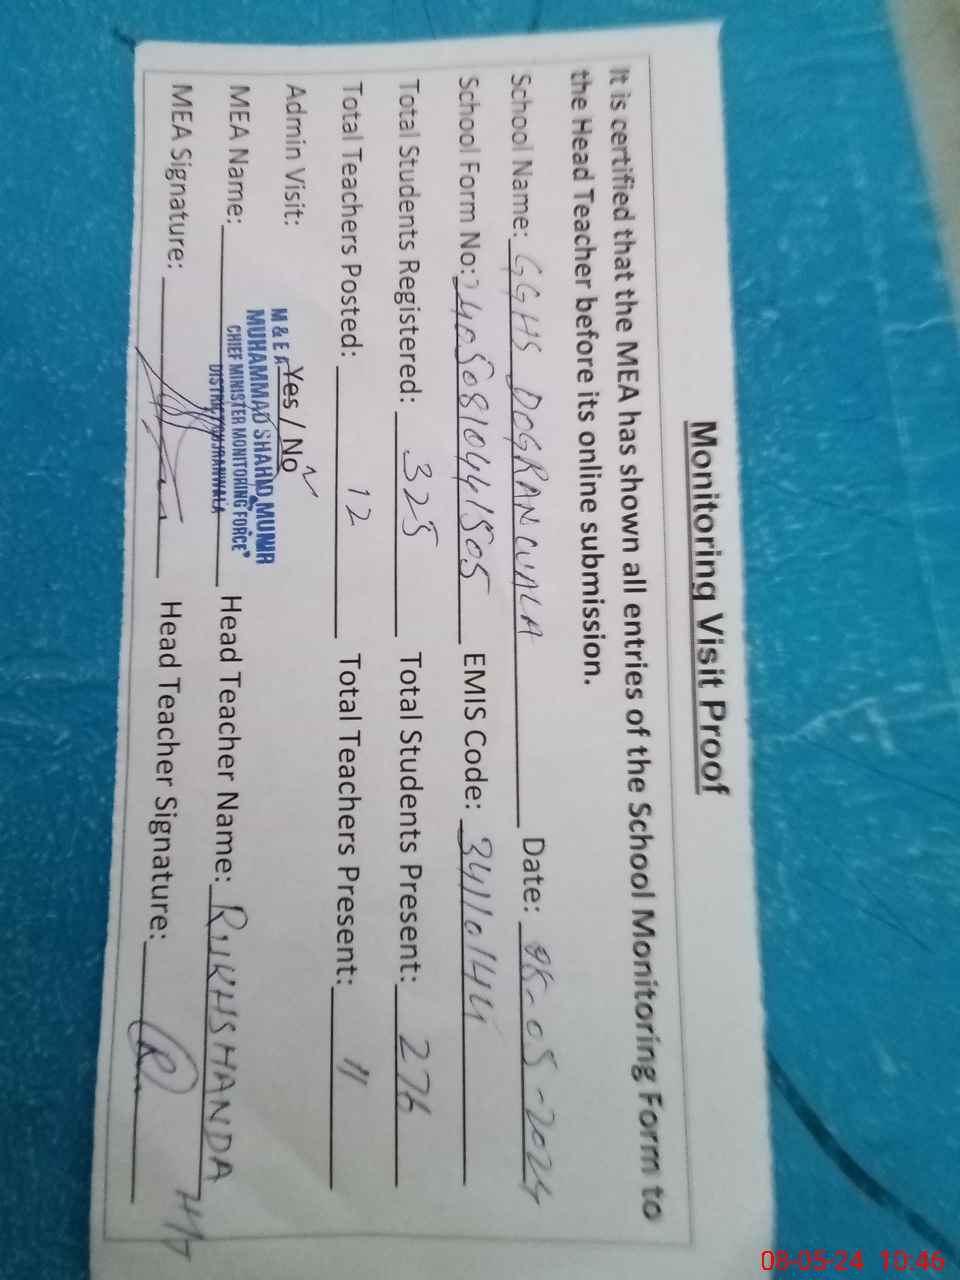 Monitoring Visit Proof
It is certified that the MEA has shown all entries of the School Monitoring Form to
the Head Teacher before its online submission.
School Name: GGHS DOGRANWALA Date: 08-05-2024
School Form No: 24050810441505 EMIS Code: 34110144
Total Students Registered: 325 Total Students Present: 276
Total Teachers Posted: 12 Total Teachers Present: 11
Admin Visit: Yes / No
M & E A
MUHAMMAD SHAHID MUNIR
CHIEF MINISTER MONITORING FORCE
DISTRICT GUJRANWALA
MEA Name: Head Teacher Name: RUKHSHANDA
MEA Signature: Head Teacher Signature:
08-05-24 10:46